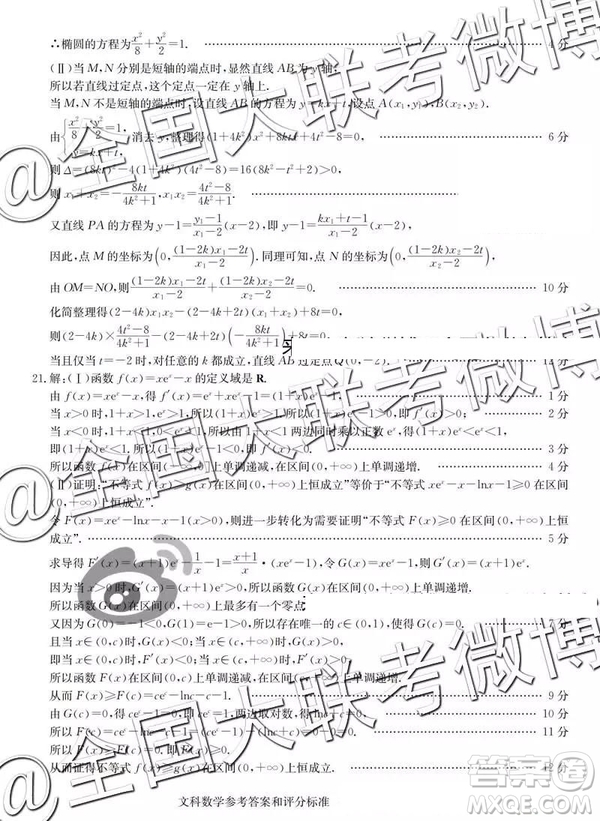 ∴椭圆的方程为x²/8+y²/2=1. 4分
(Ⅱ)当M,N分别是短轴的端点时,显然直线AB为y轴,
所以若直线过定点,这个定点一定在y轴上.
当M,N不是短轴的端点时,设直线AB的方程为y=kx+t,设点A(x₁,y₁),B(x₂,y₂).
由{x²/8+y²/2=1, y=kx+t, 消去y,整理得(1+4k²)x²+8ktx+4t²-8=0, 6分
则Δ=(8kt)²-4(1+4k²)(4t²-8)=16(8k²-t²+2)>0,
则x₁+x₂=-8kt/(4k²+1),x₁x₂=(4t²-8)/(4k²+1).
又直线PA的方程为y-1=(y₁-1)/(x₁-2)(x-2),即y-1=(kx₁+t-1)/(x₁-2)(x-2),
因此,点M的坐标为(0,((1-2k)x₁-2t)/(x₁-2)).同理可知,N的坐标为(0,((1-2k)x₂-2t)/(x₂-2)),
由OM=NO,则((1-2k)x₁-2t)/(x₁-2)+((1-2k)x₂-2t)/(x₂-2)=0. 10分
化简整理得(2-4k)x₁x₂-(2-4k+2t)(x₁+x₂)+8t=0,
则(2-4k)×(4t²-8)/(4k²+1)-(2-4k+2t)(-8kt/(4k²+1))+8t=0,
当且仅当t=-2时,对任意的k都成立,直线AB过定点Q(0,-2). 12分
21.解:(Ⅰ)函数f(x)=xeˣ-x的定义域是R.
由f(x)=xeˣ-x,得f′(x)=(1+x)eˣ-1. 1分
当x>0时,1+x>1,所以(1+x)eˣ>1,所以f′(x)>0. 2分
当x<0时,1+x<1,由0<eˣ<1,所以由1+x<1两边同时乘以正数eˣ,得(1+x)eˣ<eˣ,
即(1+x)eˣ<eˣ<1,所以f′(x)<0. 3分
所以函数f(x)在区间(-∞,0)上单调递减,在区间(0,+∞)上单调递增. 4分
(Ⅱ)证明:“不等式f(x)≥g(x)在区间(0,+∞)上恒成立”等价于“不等式xeˣ-x-lnx-1≥0在区间(0,+∞)上恒成立”.
令F(x)=xeˣ-lnx-x-1(x>0),则进一步转化为需要证明“不等式F(x)≥0在区间(0,+∞)上恒
成立”. 5分
求导得F′(x)=(x+1)eˣ-1/x-1=(x+1)/x·(xeˣ-1),令G(x)=xeˣ-1,则G′(x)=(x+1)eˣ.
因为当x>0时,G′(x)>0,所以函数G(x)在区间(0,+∞)上单调递增.
所以函数G(x)在区间(0,+∞)上最多有一个零点.
又因为G(0)=-1<0,G(1)=e-1>0,所以存在唯一的c∈(0,1),使得G(c)=0. 7分
且当x∈(0,c)时,G(x)<0;当x∈(c,+∞)时,G(x)>0.
即当x∈(0,c)时,F′(x)<0;当x∈(c,+∞)时,F′(x)>0.
所以函数F(x)在区间(0,c)上单调递减,在区间(c,+∞)上单调递增.
从而F(x)≥F(c)=ceᶜ-lnc-c-1. 9分
由G(c)=0,得ceᶜ-1=0,即ceᶜ=1,两边取对数,得lnc+c=0. 10分
所以F(c)=ceᶜ-lnc-c-1=(ceᶜ-1)-(lnc+c)=0-0=0. 11分
所以F(x)≥F(c)=0.
从而证得不等式f(x)≥g(x)在区间(0,+∞)上恒成立. 12分
文科数学参考答案和评分标准
@全国大联考微博
@全国大联考微博
答案圈